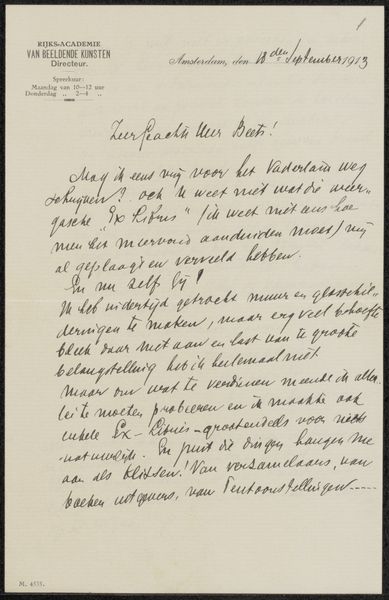 1
RIJKS-ACADEMIE
VAN BEELDENDE KUNSTEN
Directeur.
Spreekuur:
Maandag van 10—12 uur
Donderdag „ 2—4 „
Amsterdam, den 18den September 1913
Zeer Geachte Heer Beets!
Mag ik eens vrij voor het Vaderland weg
schrijven? och U weet niet wat die weer-
gasche "Ex Libris" (ik weet niet eens hoe
men dit meervoud aanduiden moet) mij
al geplaagd en verveeld hebben.
En nu zelf bij!
Ik heb indertijd getracht muur en glasschil-
deringen te maken, maar erg veel behoefte
bleek daar niet aan en last van groote
belangstelling heb ik heelemaal niet.
Maar om wat te verdienen meende ik aller-
lei te moeten probeeren en ik maakte ook
enkele Ex-Libris - grootendeels voor niets
natuurlijk. En juist die dingen hangen me
aan als klissen! Van verzamelaars, van
boeken uitgevers, van Tentoonstellingen----
M. 4535.